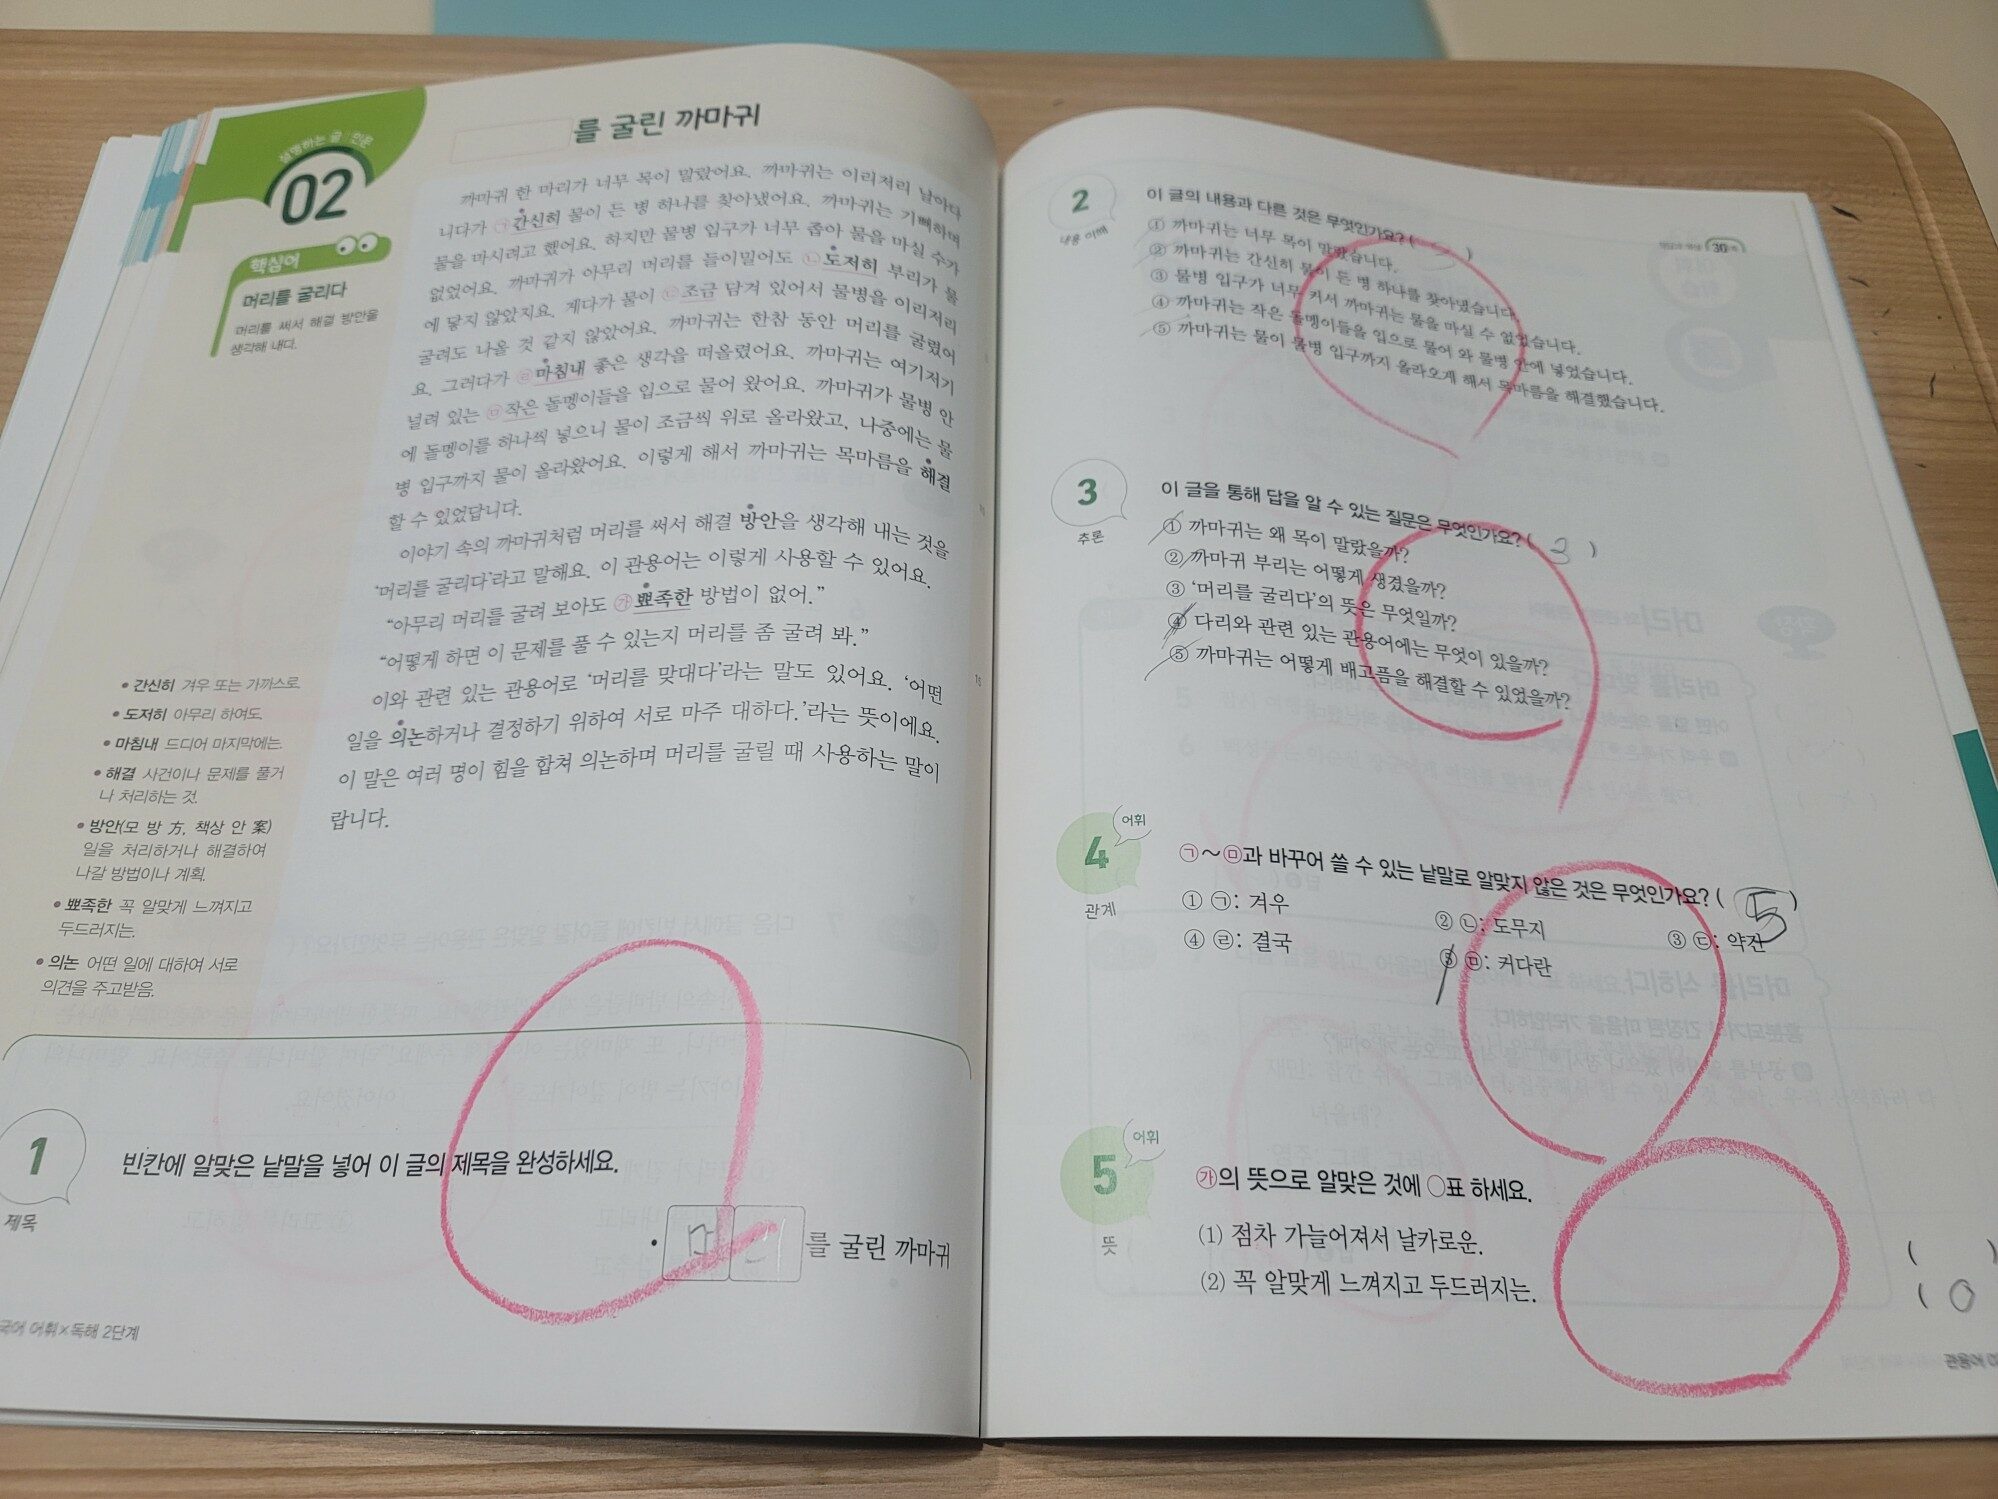 설명하는 글 | 인문
02
핵심어
머리를 굴리다
머리를 써서 해결 방안을
생각해 내다.
를 굴린 까마귀
까마귀 한 마리가 너무 목이 말랐어요. 까마귀는 이리저리 날아다
니다가 ㉠간신히 물이 든 병 하나를 찾아냈어요. 까마귀는 기뻐하며
물을 마시려고 했어요. 하지만 물병 입구가 너무 좁아 물을 마실 수가
없었어요. 까마귀가 아무리 머리를 들이밀어도 ㉡도저히 부리가 물
에 닿지 않았지요. 게다가 물이 ㉢조금 담겨 있어서 물병을 이리저리
굴려도 나올 것 같지 않았어요. 까마귀는 한참 동안 머리를 굴렸어
요. 그러다가 ㉣마침내 좋은 생각을 떠올렸어요. 까마귀는 여기저기
널려 있는 ㉤작은 돌멩이들을 입으로 물어 왔어요. 까마귀가 물병 안
에 돌멩이를 하나씩 넣으니 물이 조금씩 위로 올라왔고, 나중에는 물
병 입구까지 물이 올라왔어요. 이렇게 해서 까마귀는 목마름을 해결
할 수 있었답니다.
이야기 속의 까마귀처럼 머리를 써서 해결 방안을 생각해 내는 것을
‘머리를 굴리다’라고 말해요. 이 관용어는 이렇게 사용할 수 있어요.
“아무리 머리를 굴려 보아도 ㉮뾰족한 방법이 없어.”
“어떻게 하면 이 문제를 풀 수 있는지 머리를 좀 굴려 봐.”
이와 관련 있는 관용어로 ‘머리를 맞대다’라는 말도 있어요. ‘어떤
일을 의논하거나 결정하기 위하여 서로 마주 대하다.’라는 뜻이에요.
이 말은 여러 명이 힘을 합쳐 의논하며 머리를 굴릴 때 사용하는 말이
랍니다.
15
• 간신히 겨우 또는 가까스로.
• 도저히 아무리 하여도.
• 마침내 드디어 마지막에는.
• 해결 사건이나 문제를 풀거
나 처리하는 것.
• 방안(모 방 方, 책상 안 案)
일을 처리하거나 해결하여
나갈 방법이나 계획.
• 뾰족한 꼭 알맞게 느껴지고
두드러지는.
• 의논 어떤 일에 대하여 서로
의견을 주고받음.
1
제목
빈칸에 알맞은 낱말을 넣어 이 글의 제목을 완성하세요.
• 를 굴린 까마귀
국어 어휘×독해 2단계
2
내용 이해
이 글의 내용과 다른 것은 무엇인가요? ( )
① 까마귀는 너무 목이 말랐습니다.
② 까마귀는 간신히 물이 든 병 하나를 찾아냈습니다.
③ 물병 입구가 너무 커서 까마귀는 물을 마실 수 없었습니다.
④ 까마귀는 작은 돌멩이들을 입으로 물어 와 물병 안에 넣었습니다.
⑤ 까마귀는 물이 물병 입구까지 올라오게 해서 목마름을 해결했습니다.
3
추론
이 글을 통해 답을 알 수 있는 질문은 무엇인가요? ( 3 )
① 까마귀는 왜 목이 말랐을까?
② 까마귀 부리는 어떻게 생겼을까?
③ ‘머리를 굴리다’의 뜻은 무엇일까?
④ 다리와 관련 있는 관용어에는 무엇이 있을까?
⑤ 까마귀는 어떻게 배고픔을 해결할 수 있었을까?
4
어휘
관계
㉠~㉤과 바꾸어 쓸 수 있는 낱말로 알맞지 않은 것은 무엇인가요? ( 5 )
① ㉠: 겨우
② ㉡: 도무지
③ ㉢: 약간
④ ㉣: 결국
⑤ ㉤: 커다란
5
어휘
뜻
㉮의 뜻으로 알맞은 것에 ○표 하세요.
(1) 점차 가늘어져서 날카로운. ( )
(2) 꼭 알맞게 느껴지고 두드러지는. ( O )
관용어